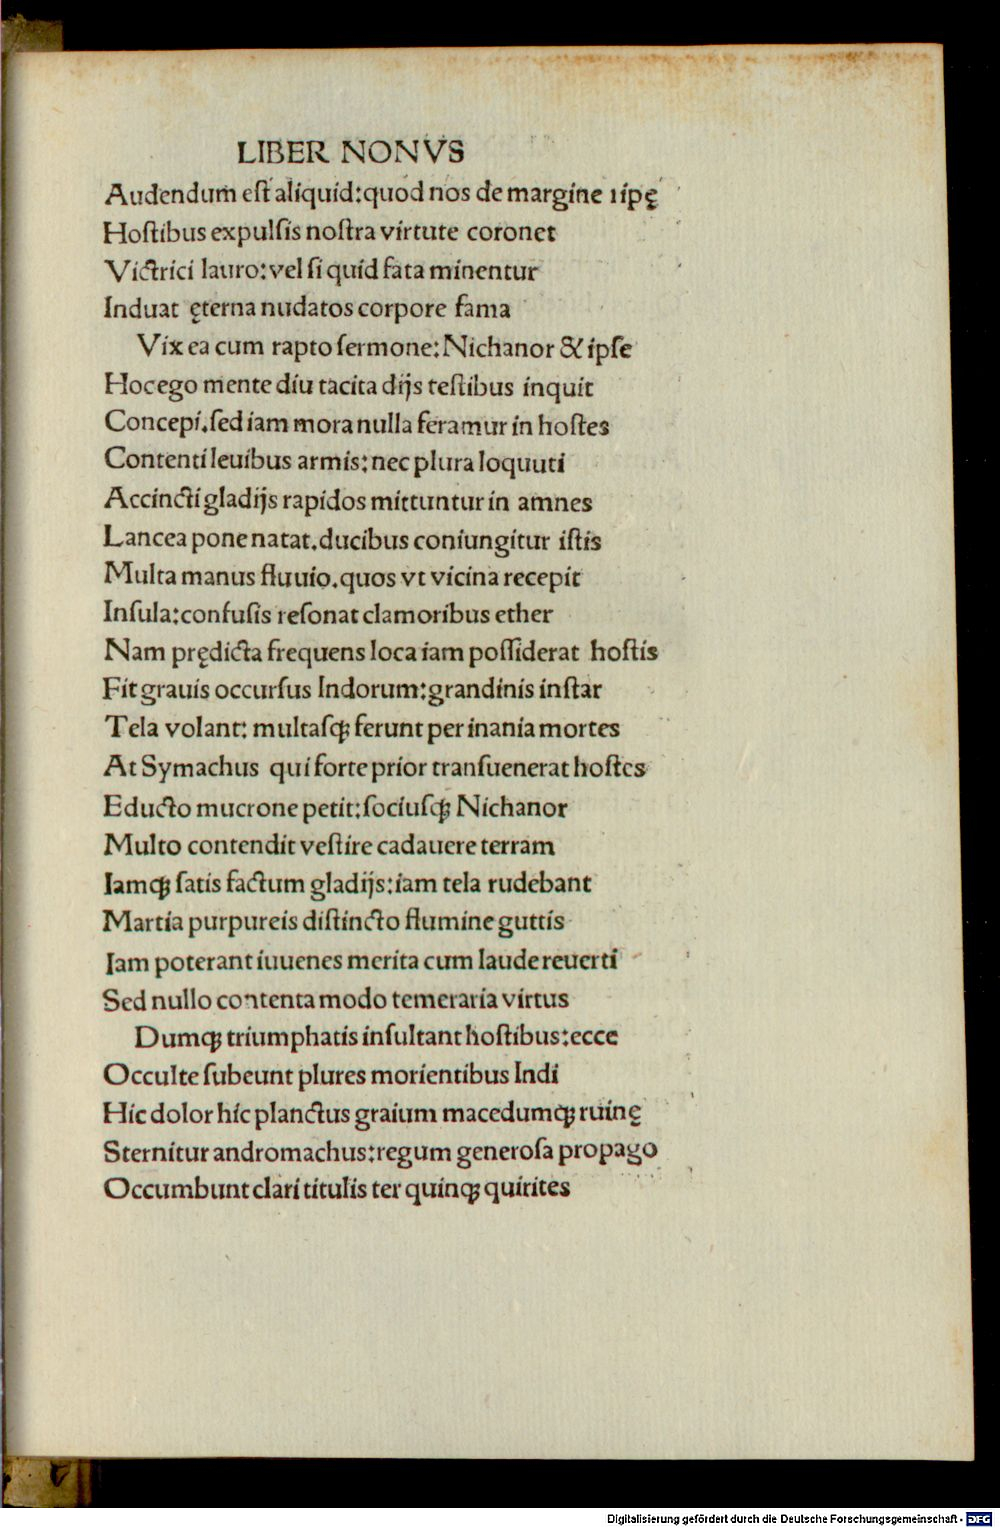 LIBER NONVS
Audendum eſt aliquid:quod nos de margine ripę
Hoſtibus expulſis noſtra virtute coronet
Victrici lauro:vel ſi quid fata minentur
Induat ęterna nudatos corpore fama
Vix ea cum rapto ſermone:Nichanor & ipſe
Hoc ego mente diu tacita dijs teſtibus inquit
Concepi.ſed iam mora nulla feramur in hoſtes
Contenti leuibus armis:nec plura loquuti
Accincti gladijs rapidos mittuntur in amnes
Lancea pone natat.ducibus coniungitur iſtis
Multa manus fluuio.quos vt vicina recepit
Inſula:confuſis reſonat clamoribus ether
Nam prędicta frequens loca iam poſſiderat hoſtis
Fit grauis occurſus Indorum:grandinis inſtar
Tela volant: multaſqꝫ ferunt per inania mortes
At Symachus qui forte prior tranſuenerat hoſtes
Educto mucrone petit:ſociuſqꝫ Nichanor
Multo contendit veſtire cadauere terram
Iamqꝫ ſatis factum gladijs:iam tela rudebant
Martia purpureis diſtincto flumine guttis
Iam poterant iuuenes merita cum laude reuerti
Sed nullo contenta modo temeraria virtus
Dumqꝫ triumphatis inſultant hoſtibus:ecce
Occulte ſubeunt plures morientibus Indi
Hic dolor hic planctus graium macedumqꝫ ruinę
Sternitur andromachus:regum generoſa propago
Occumbunt clari titulis ter quinqꝫ quirites
Digitalisierung gefördert durch die Deutsche Forschungsgemeinschaft - DFG